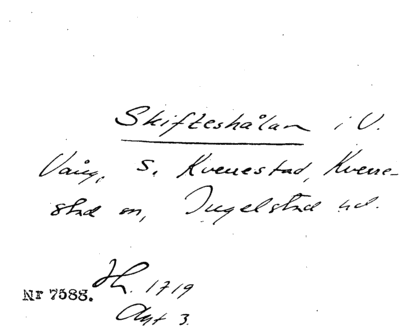 Skifteshålan i V.
Vång, S. Kvenestad, Kvene-
stad sn, Ingelstad hd.
Nr 7588. H. 1719
Akt 3.